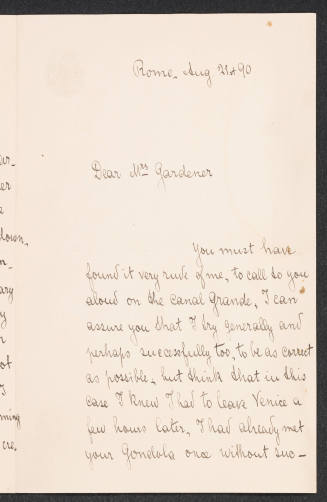 Rome, Aug 21st 90
Dear Mrs Gardener
You must have
found it very rude of me, to call to you
aloud on the Canal Grande, I can
assure you that I try generally and
perhaps successfully too, to be as correct
as possible, but think that in this
case I knew I had to leave Venice a
few hours later, I had already met
your Gondola once without suc-
down,
ary
ot
I